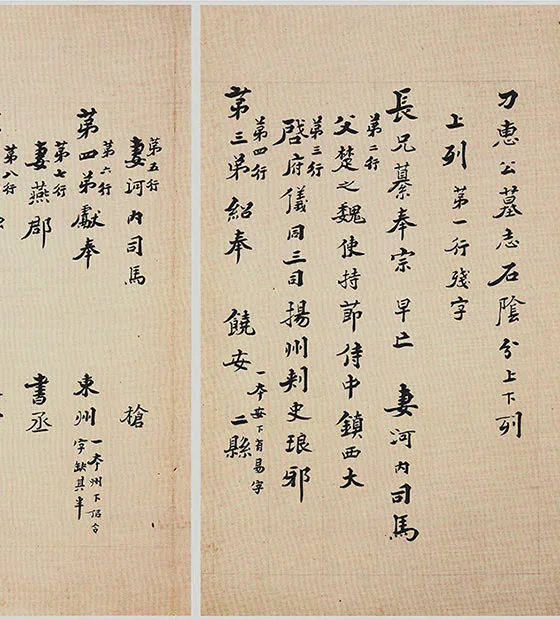 刁惠公墓志石陰分上下列
上列 第一行殘字
長兄纂奉宗 早亡 妻河内司馬
第二行
父楚之魏使持節侍中鎮西大
第三行
啓府儀同三司揚州刾史琅邪
第四行
第三弟紹奉 饒安 二縣
一本安下有易字
第五行
妻河内司馬 槍
第六行
第四弟獻奉 東州
一本州下合
字缺其半
第七行
妻燕郡 書丞
第八行